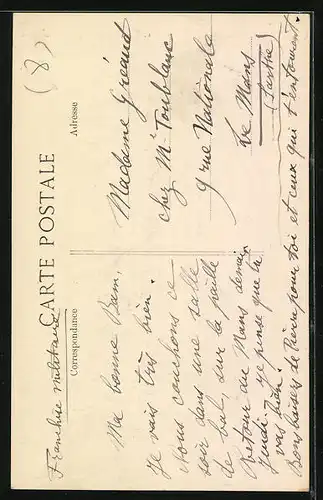 (8)
Franchise militaire
CARTE POSTALE
Correspondance
Adresse
Ma bonne Bam,
Je vais très bien.
Nous couchons ce
soir dans une salle
de bal, sur la paille
Retour au Mans demain
Jeudi. Je pense que tu
vas bien.
Bons baisers de Pierre pour toi et ceux qui t'entourent.
Madame Gréaut
chez Mr Toublanc
9 rue Nationale
Le Mans
(Sarthe)